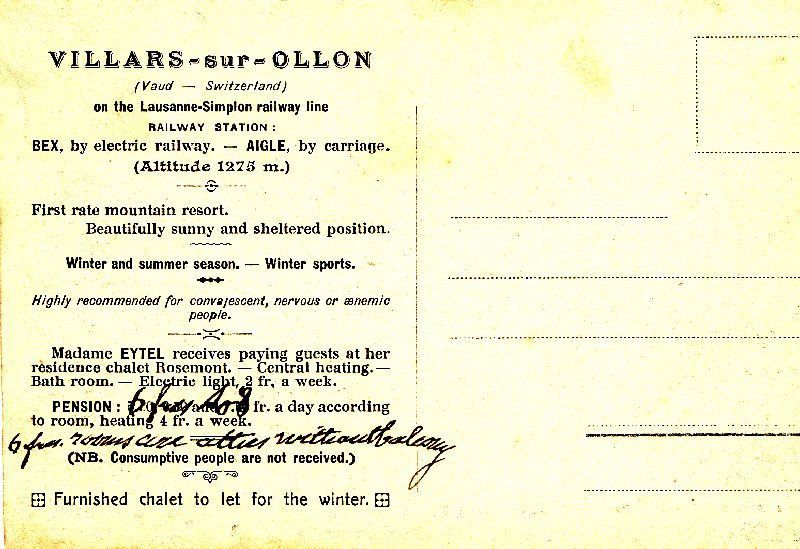 VILLARS-sur-OLLON
(Vaud — Switzerland)
on the Lausanne-Simplon railway line
RAILWAY STATION :
BEX, by electric railway. — AIGLE, by carriage.
(Altitude 1275 m.)
First rate mountain resort.
Beautifully sunny and sheltered position.
Winter and summer season. — Winter sports.
Highly recommended for convalescent, nervous or ænemic
people.
Madame EYTEL receives paying guests at her
résidence chalet Rosemont. — Central heating. —
Bath room. — Electric light, 2 fr, a week.
PENSION : 6 frs to 8 fr. a day according
to room, heating 4 fr. a week.
6 frs. rooms are attics without balcony
(NB. Consumptive people are not received.)
Furnished chalet to let for the winter.